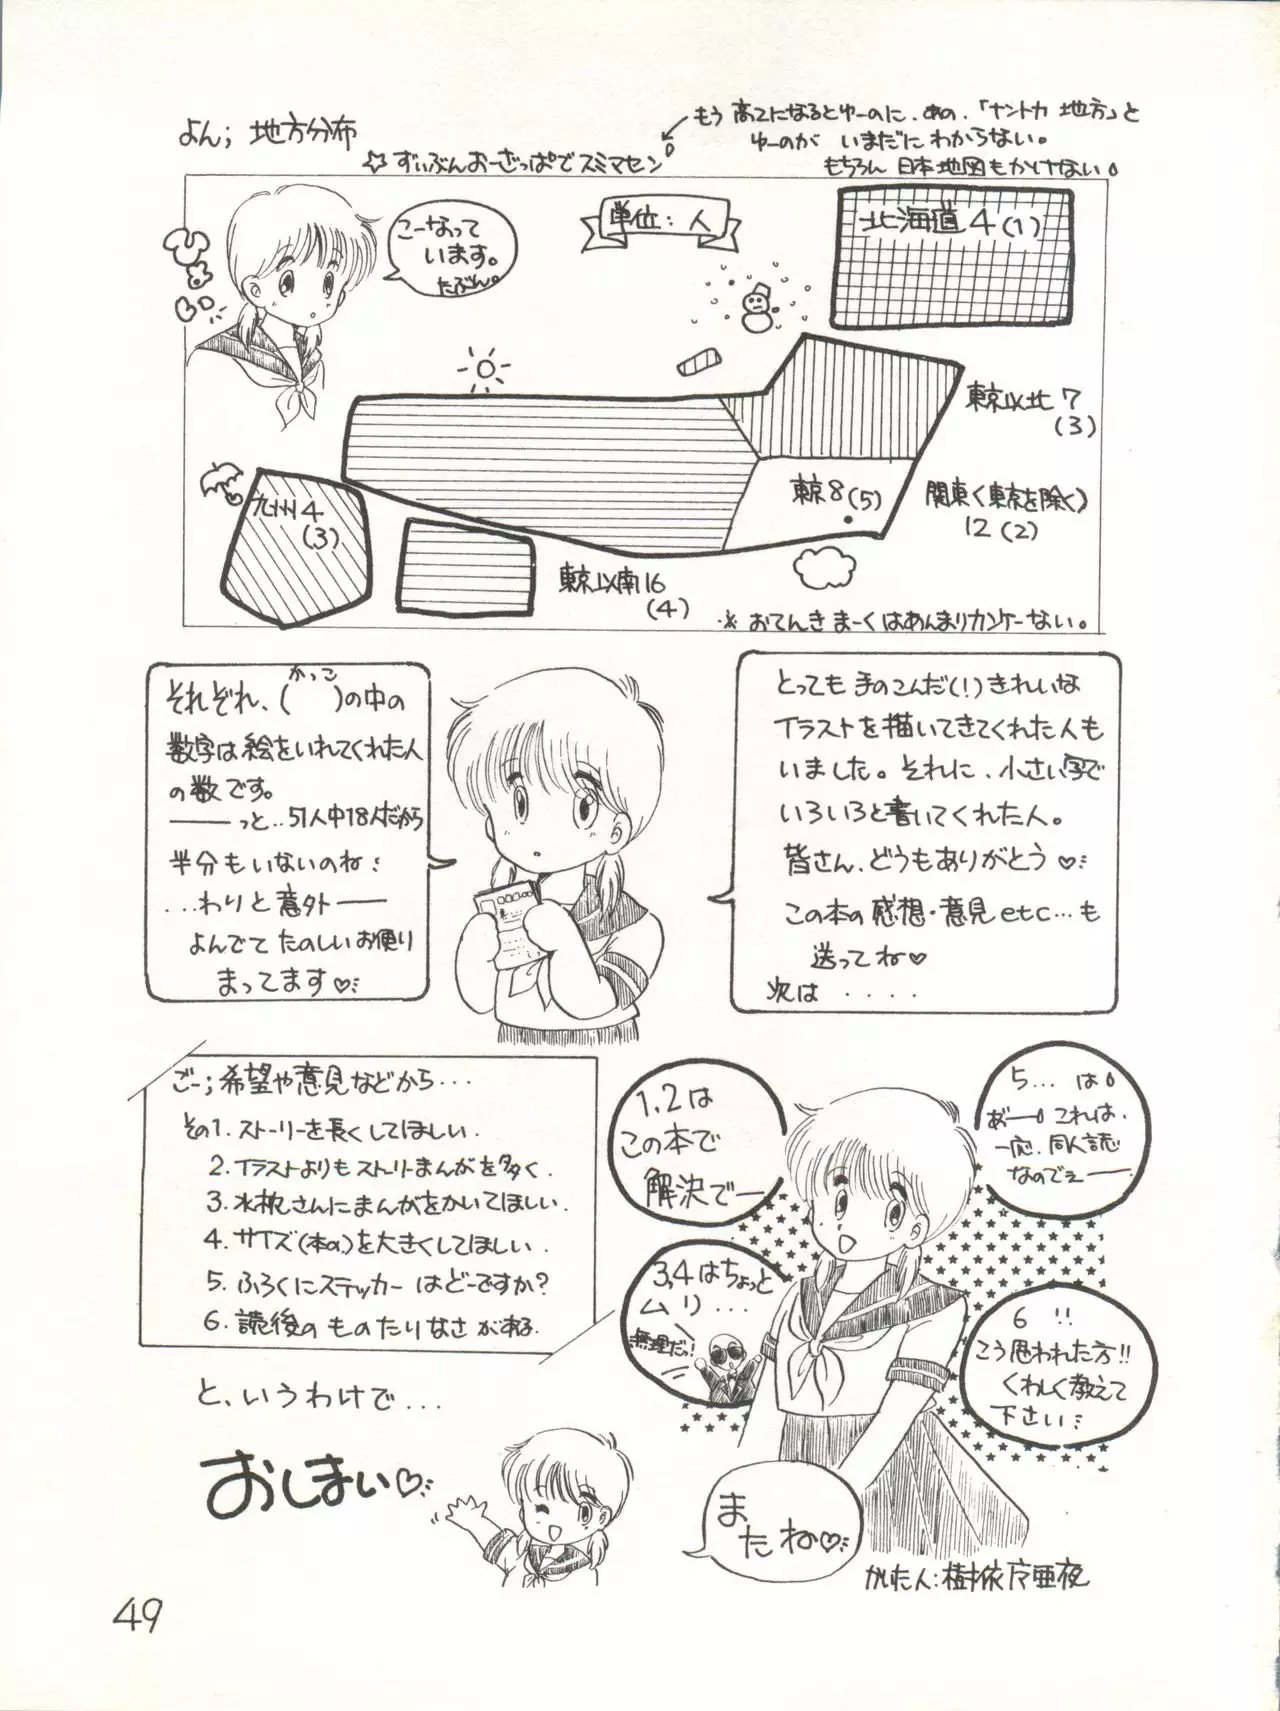 よん; 地方分布
もう 高2になるとゆーのに、あの、「ナントカ 地方」と
ゆーのが いまだに わからない。
もちろん 日本地図もかけない。
☆ ずいぶんおーざっぱでスミマセン
こーなって
います。
たぶん。
単位: 人
北海道 4 (1)
東京以北 7
(3)
東京 8 (5)
関東(東京を除く)
12 (2)
九州 4
(3)
東京以南 16
(4)
※ おてんきまーくはあんまりカンケーない。
かっこ
それぞれ、( )の中の
数字は絵をいれてくれた人
の数です。
――っと‥51人中18人だから
半分もいないのね;
...わりと意外――
よんでて たのしいお便り
まってます♡
とっても 手のこんだ(!)きれいな
イラストを描いてきてくれた人も
いました。それに、小さい字で
いろいろと書いてくれた人。
皆さん、どうもありがとう♡
この本の感想・意見etc…も
送ってね♡
次は ・・・・
ごー; 希望や意見などから...
その1. ストーリーを長くしてほしい.
2. イラストよりもストーリーまんがを多く.
3. 水枕さんにまんがをかいてほしい.
4. サイズ(本の)を大きくしてほしい.
5. ふろくにステッカーはどーですか?
6. 読後のものたりなさがある.
1, 2は
この本で
解決でー
3, 4はちょっと
ムリ...
無理だっ!
5... は
あ゛ー これは、
一応、同人誌
なのでェー
6 !!
こう思われた方!!
くわしく教えて
下さい
と、いうわけで...
おしまい♡
また
ね♡
かいた人: 樹依序亜夜
49